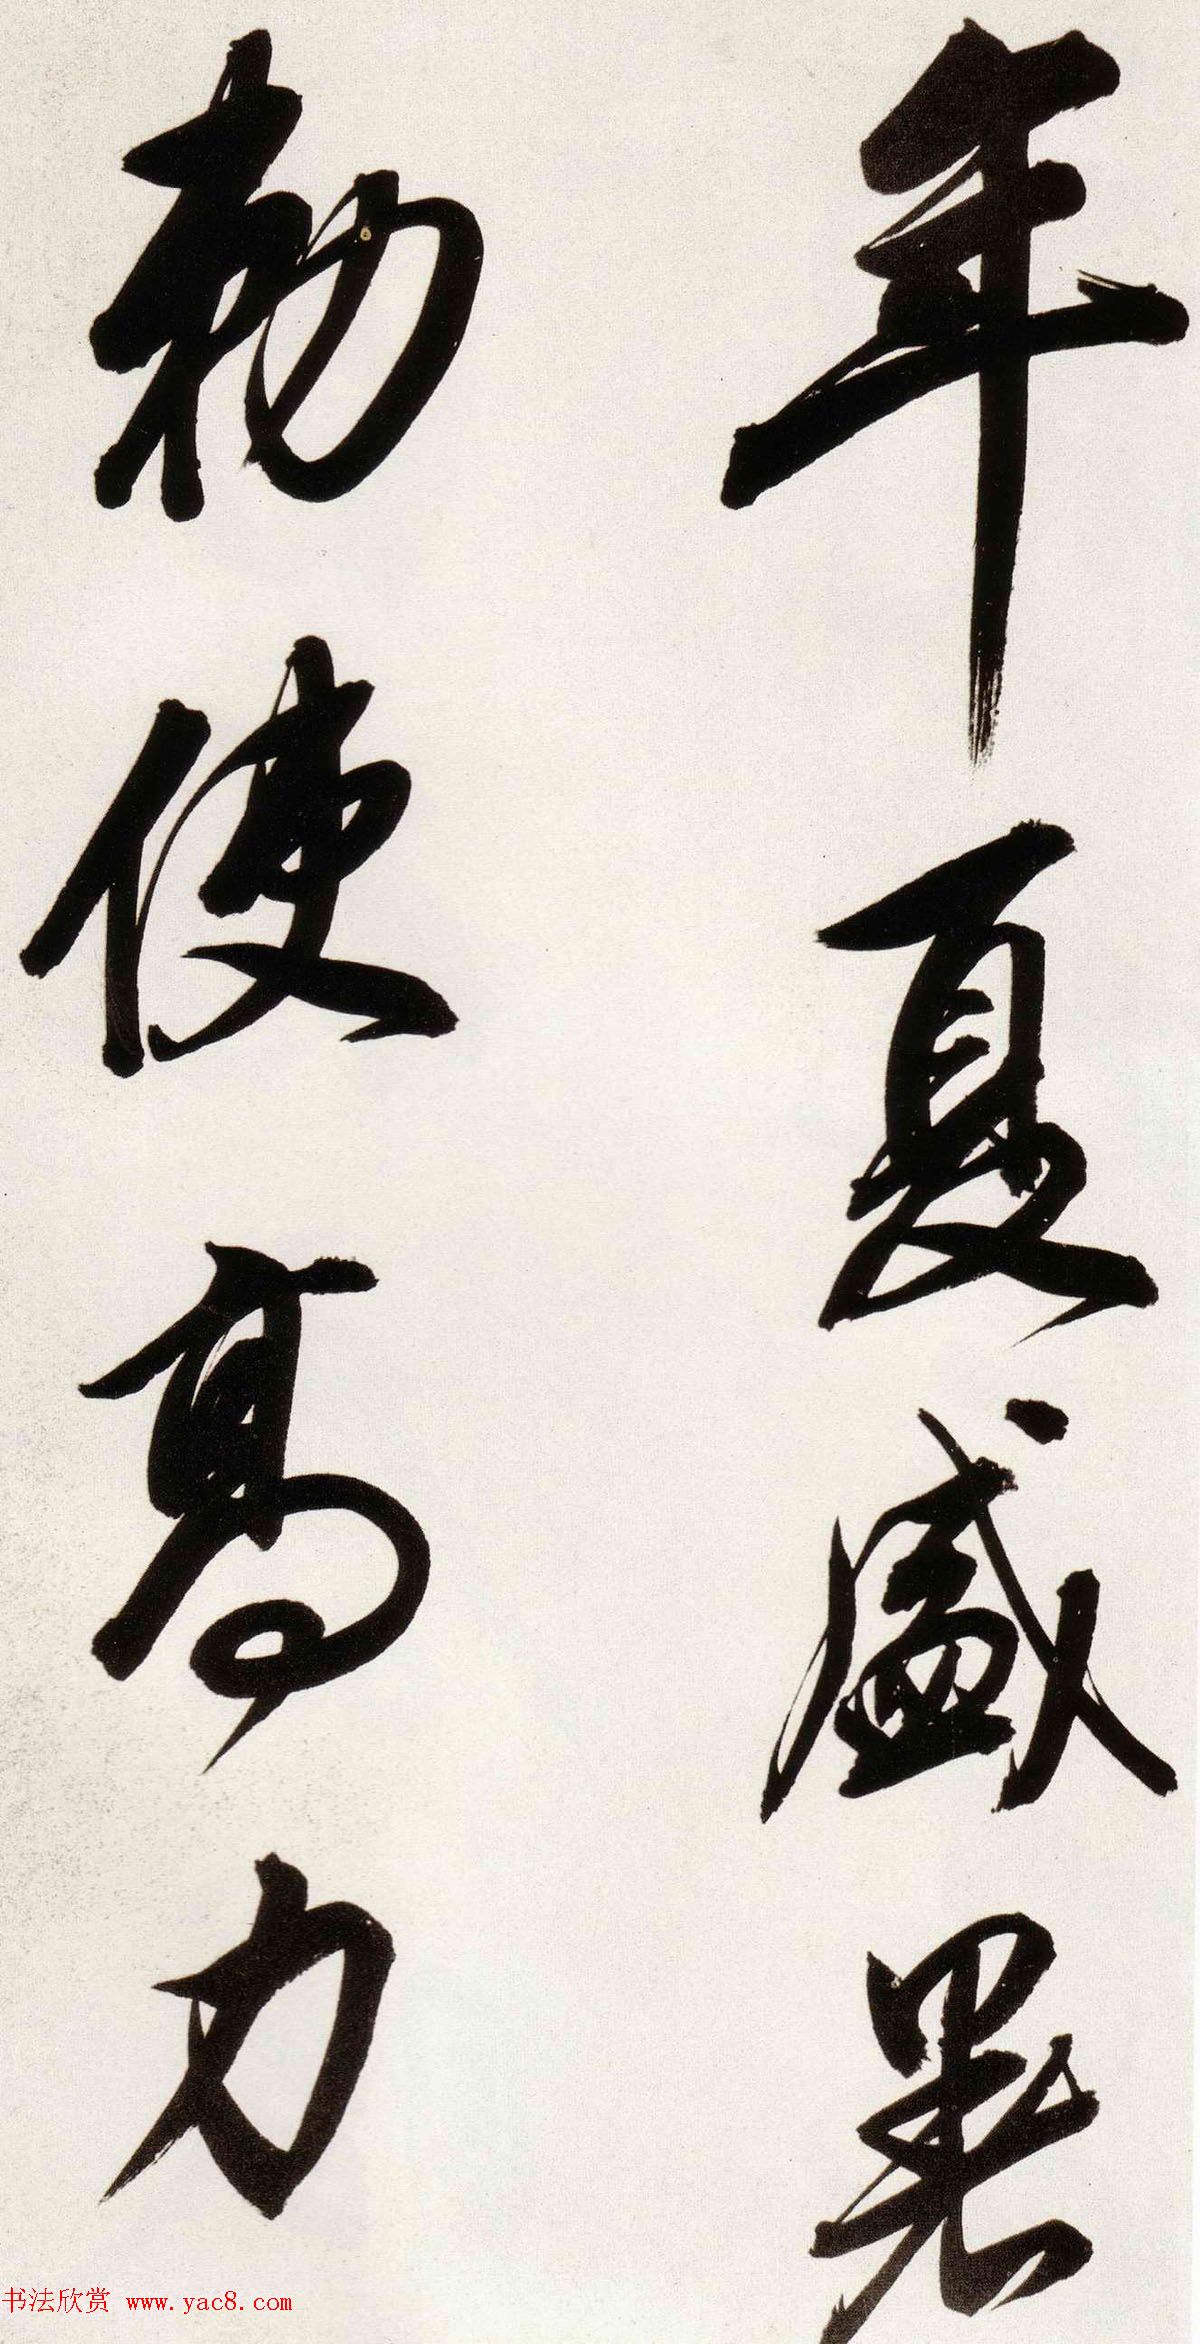 年夏盛暑
勅使高力
书法欣赏 www.yac8.com